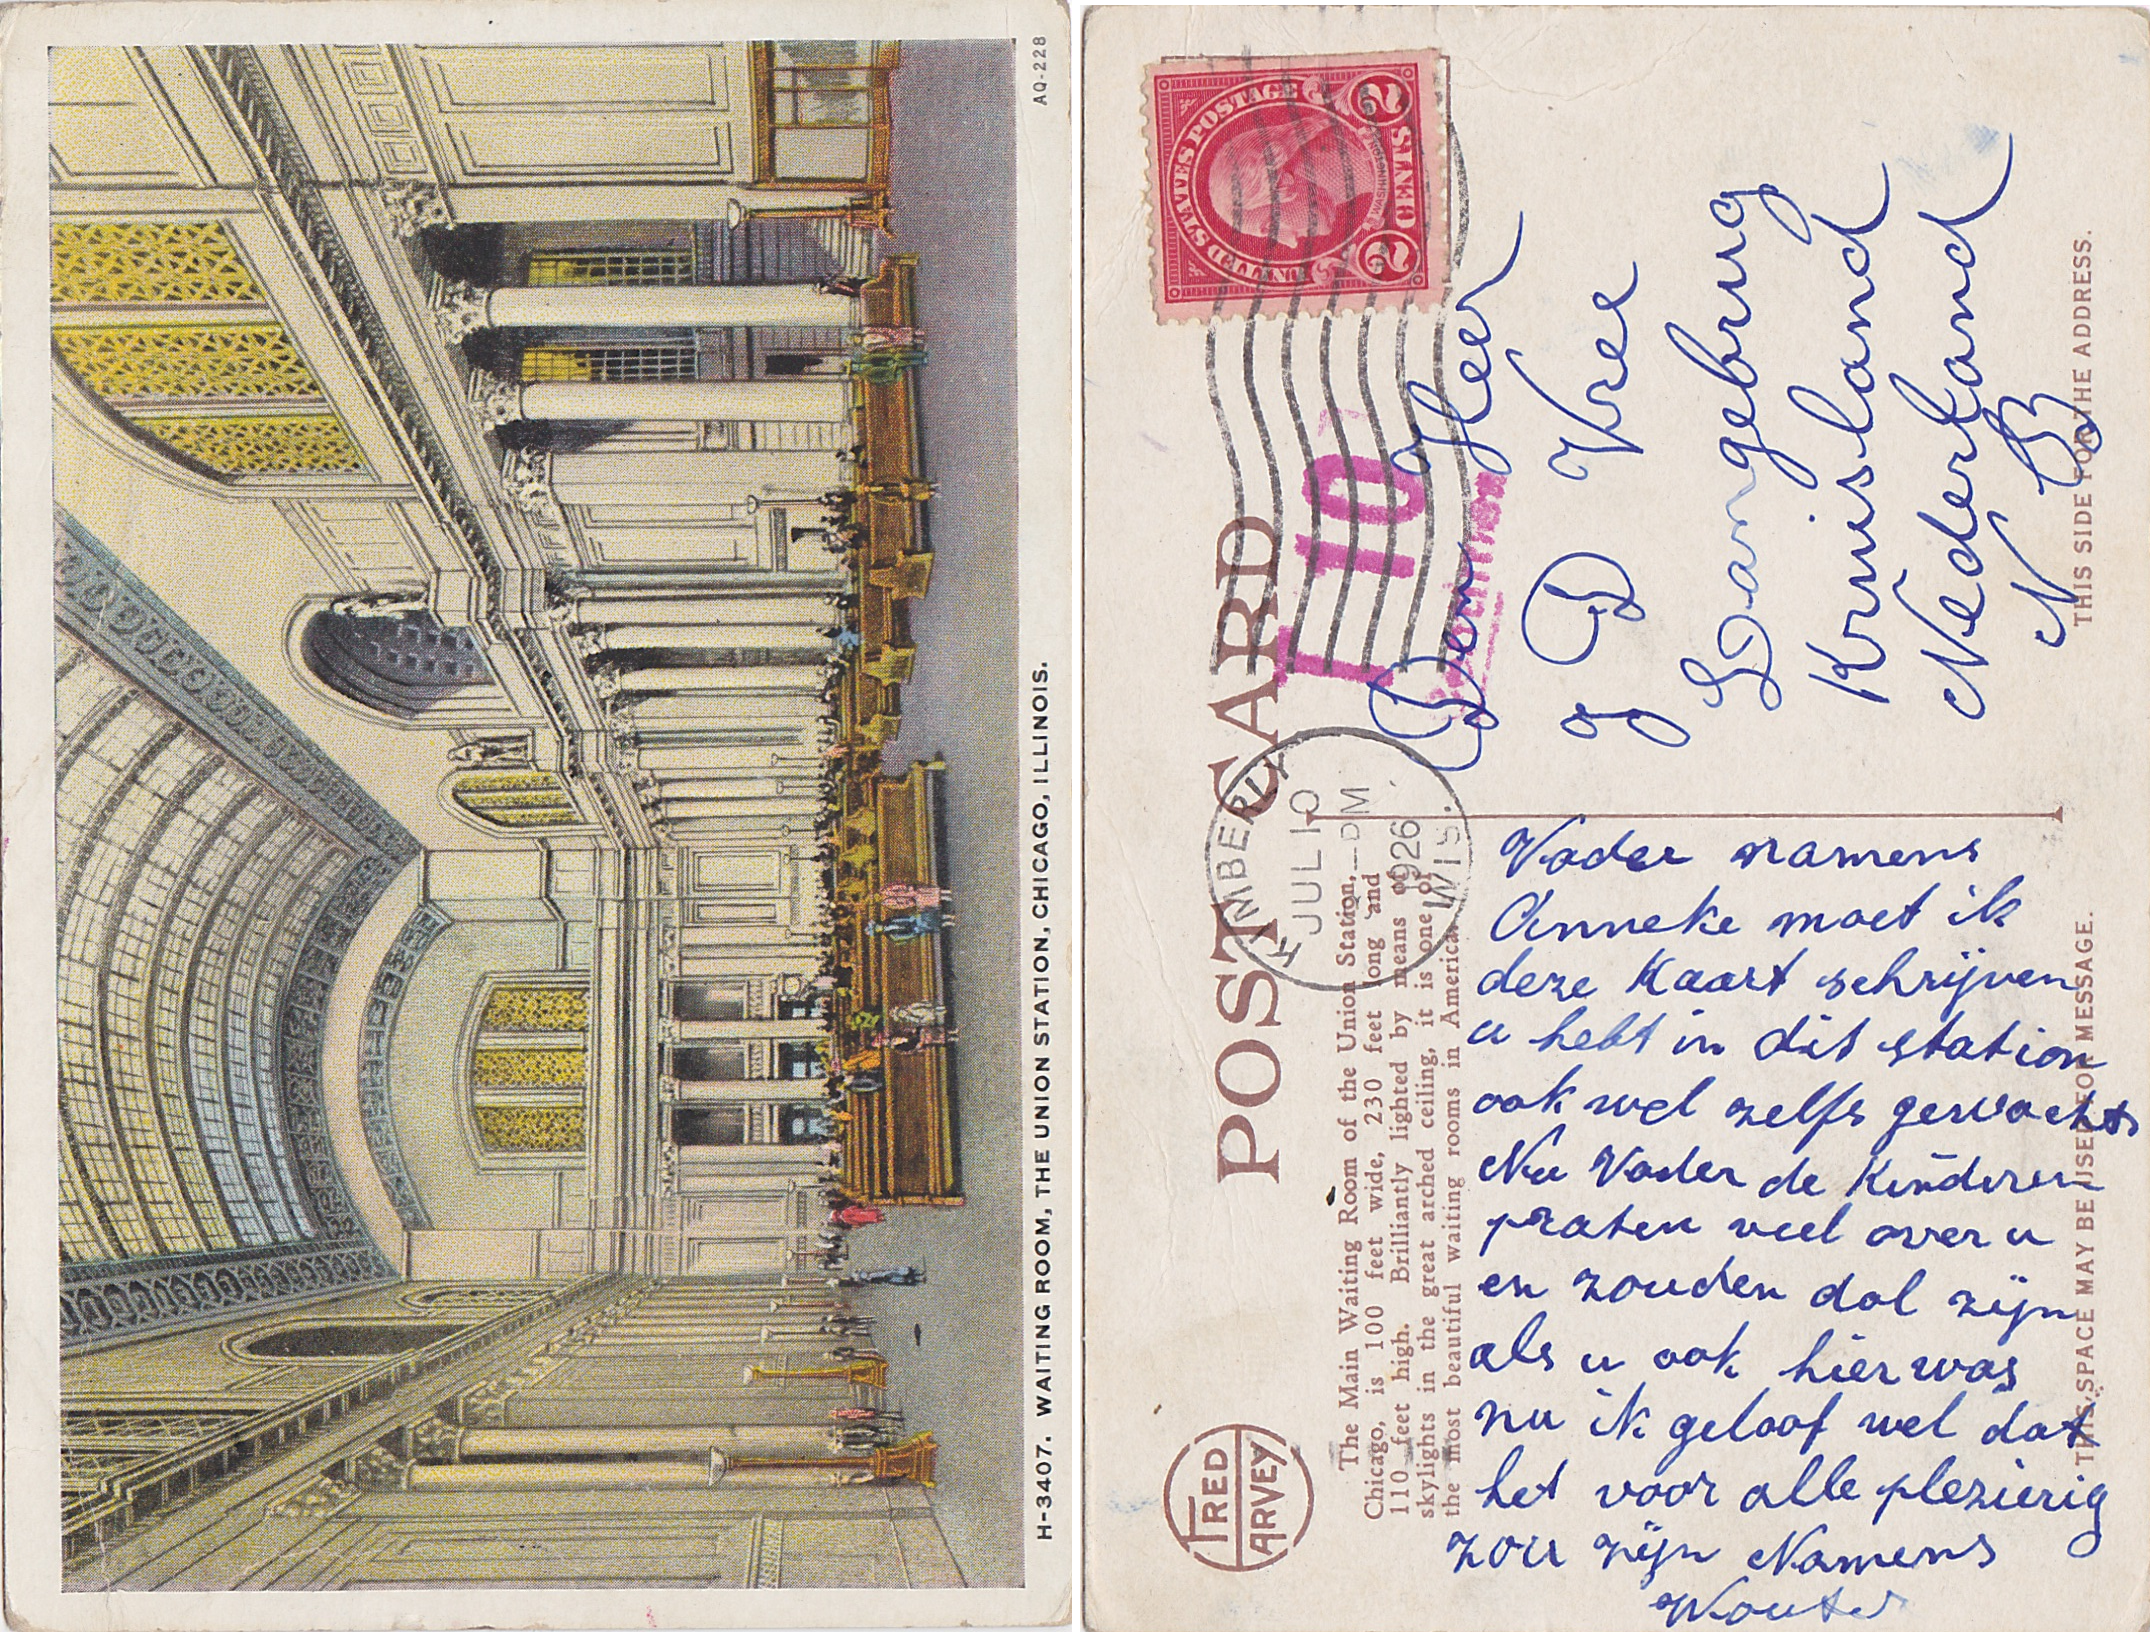 AQ-228
H-3407. WAITING ROOM, THE UNION STATION, CHICAGO, ILLINOIS.
POST CARD
UNITED STATES POSTAGE
WASHINGTON
2 CENTS 2
KIMBERLY
JUL 10
1926
WIS.
T 10
FRED
HARVEY
The Main Waiting Room of the Union Station,
Chicago, is 100 feet wide, 230 feet long and
110 feet high. Brilliantly lighted by means of
skylights in the great arched ceiling, it is one of
the most beautiful waiting rooms in America.
Vader namens
Anneke moet ik
deze Kaart schrijven
u hebt in dit station
ook wel zelfs gewacht
Nu Vader de Kinderen
praten veel over u
en zouden dol zijn
als u ook hier was
nu ik geloof wel dat
het voor alle plezierig
zou zijn Namens
Wouter
Den Heer
J D Vree
Langebrug
Kruisland
Nederland
N B
THIS SPACE MAY BE USED FOR MESSAGE.
THIS SIDE FOR THE ADDRESS.